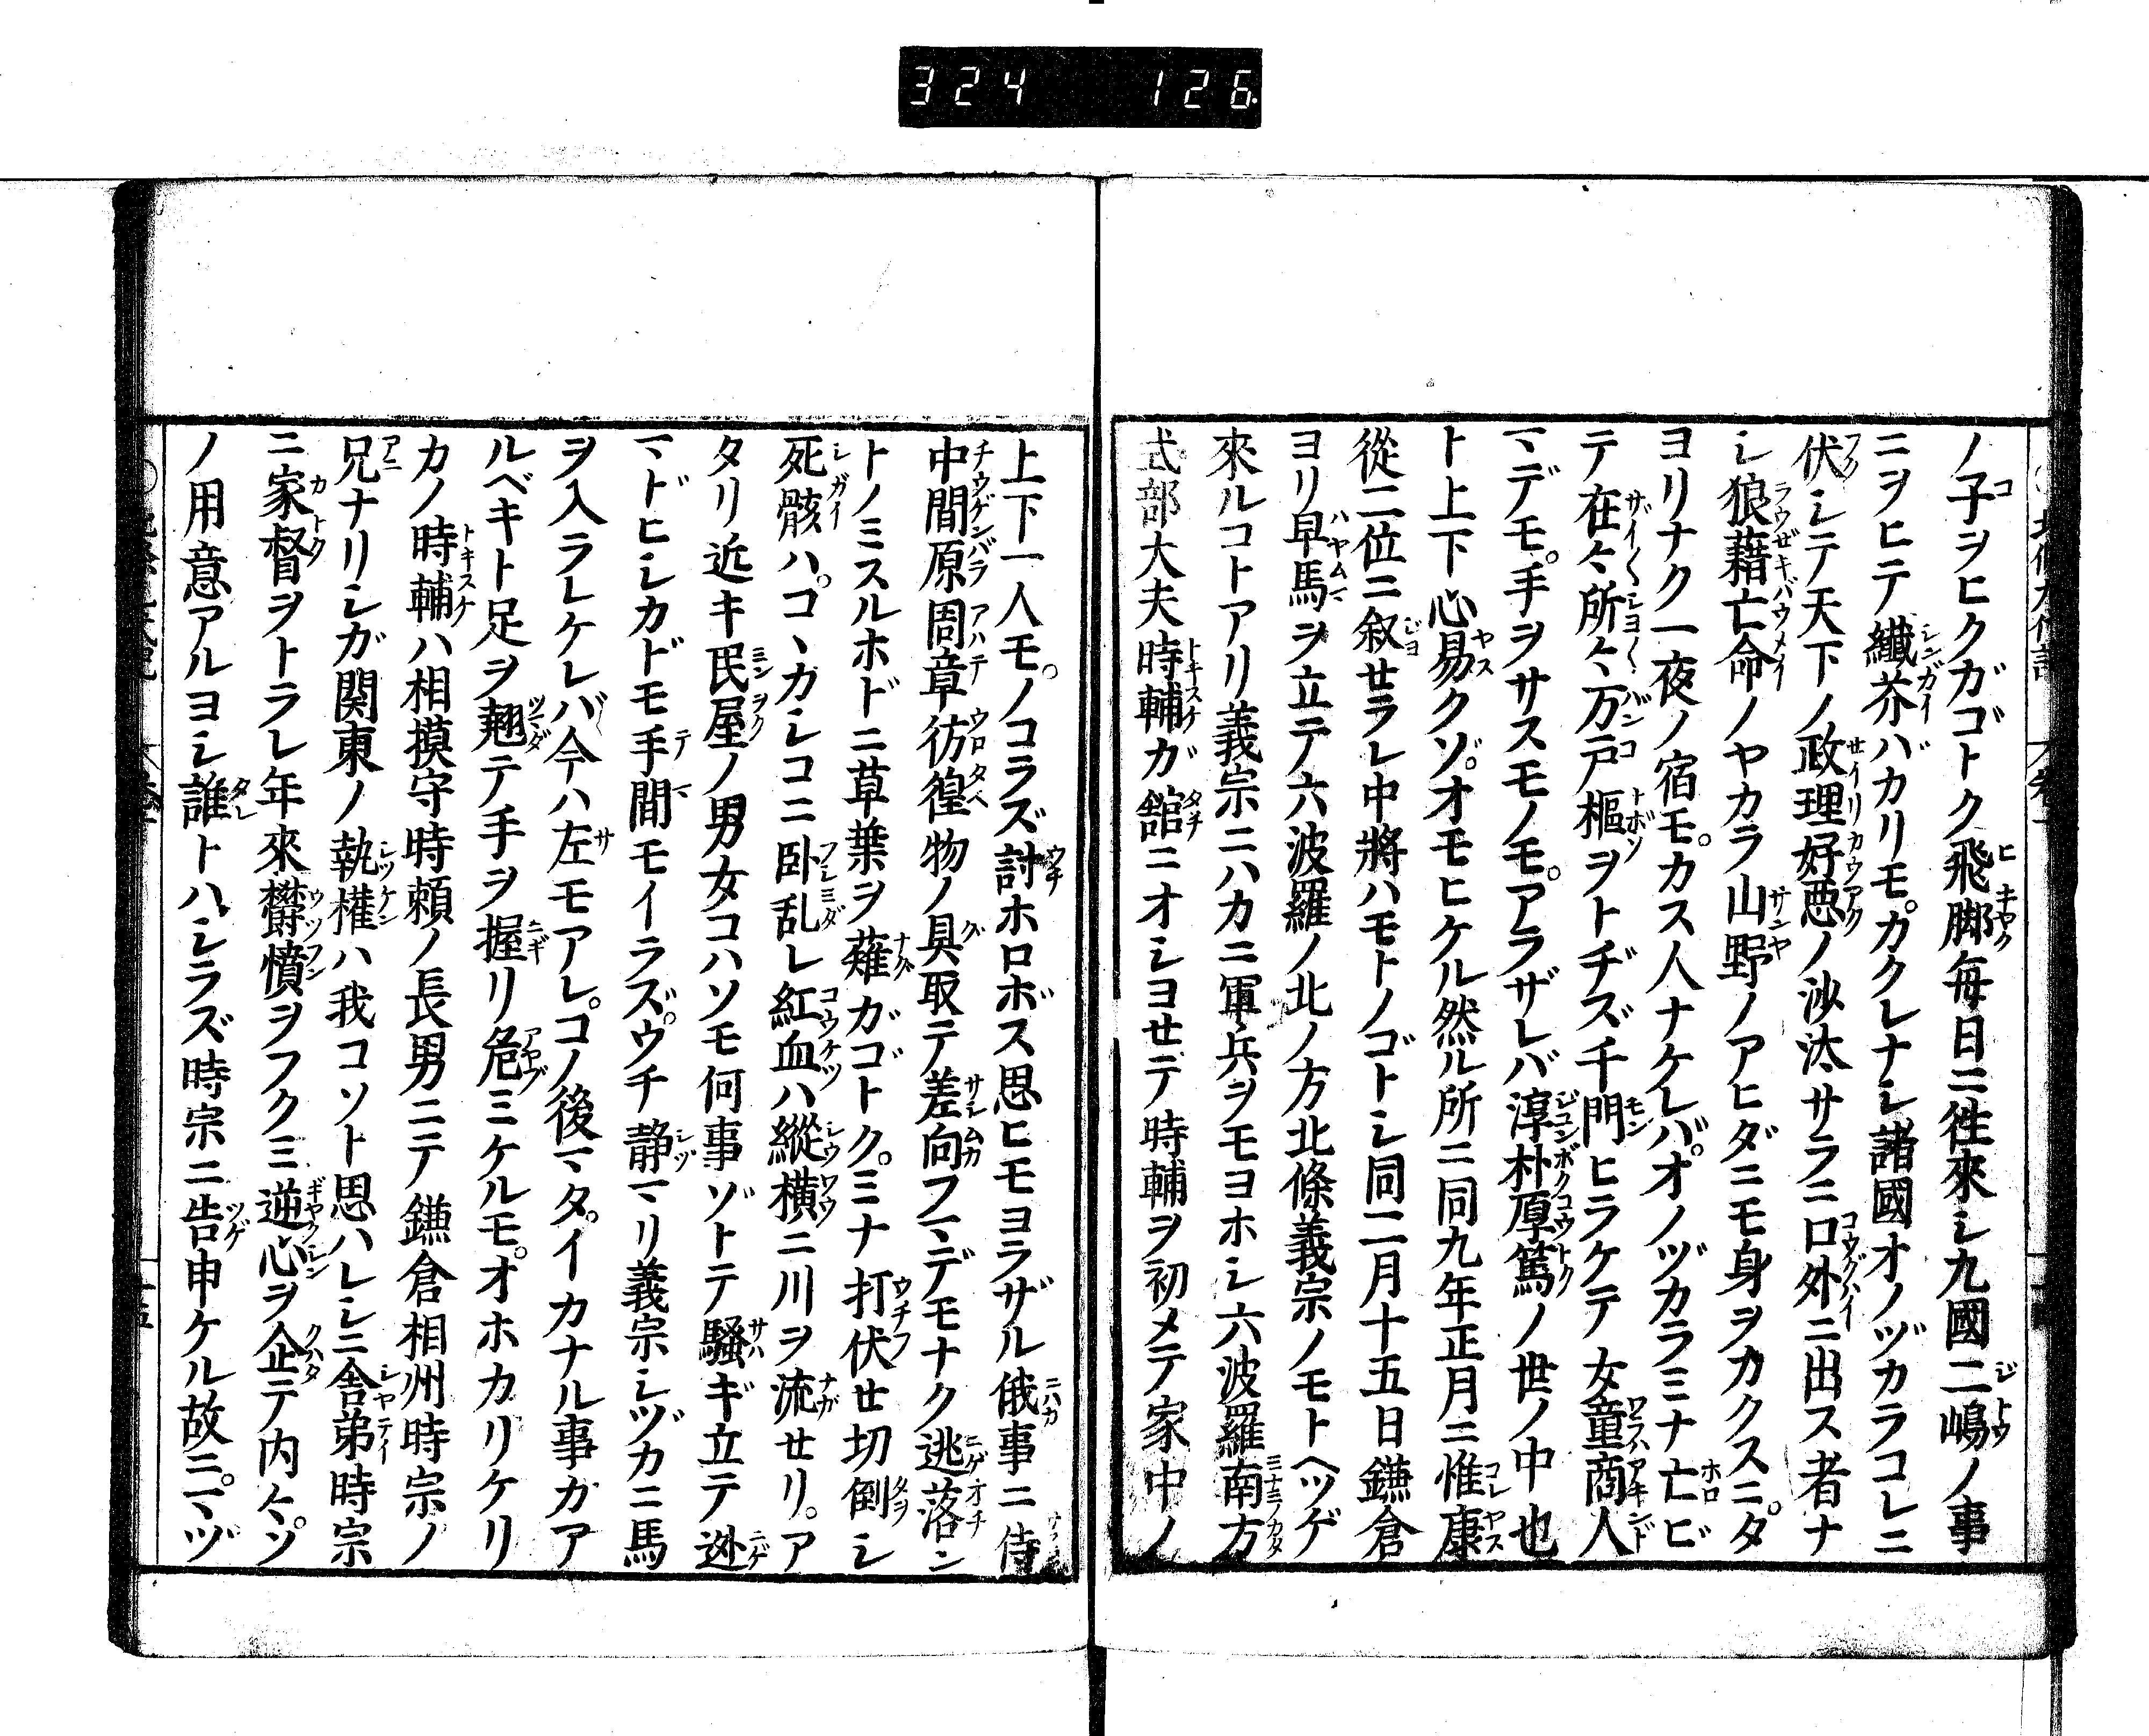 324 126
ノ子ヲヒクガゴトク飛脚毎日ニ往來シ九國二嶋ノ事
ニヲヒテ纖芥バカリモ。カクレナシ諸國オノヅカラコレニ
伏シテ天下ノ政理好悪ノ沙汰サラニ口外ニ出ス者ナ
シ狼藉亡命ノヤカラ山野ノアヒダニモ身ヲカクスニ。タ
ヨリナク一夜ノ宿モ。カス人ナケレバ。オノヅカラミナ亡ビ
テ在々所々万戸樞ヲトヂズ千門ヒラケテ女童商人
マデモ。手ヲサスモノモ。アラザレバ淳朴厚篤ノ世ノ中也
ト上下心易クゾ。オモヒケル然ル所ニ同九年正月ニ惟康
從二位ニ叙セラレ中將ハモトノゴトシ同二月十五日鎌倉
ヨリ早馬ヲ立テ六波羅ノ北ノ方北條義宗ノモトヘツゲ
來ルコトアリ義宗ニハカニ軍兵ヲモヨホシ六波羅南方
式部大夫時輔ガ舘ニオシヨセテ時輔ヲ初メテ家中ノ
上下一人モ。ノコラズ討ホロボス思ヒモヨラザル俄事ニ侍
中間原周章彷徨物ノ具取テ差向フマデモナク逃落ン
トノミスルホドニ草葉ヲ薙ガゴトク。ミナ打伏セ切倒シ
死骸ハ。コヽカシコニ卧乱レ紅血ハ縱横ニ川ヲ流セリ。ア
タリ近キ民屋ノ男女コハソモ何事ゾトテ騷ギ立テ迯
マドヒシカドモ手間モイラズ。ウチ静マリ義宗シヅカニ馬
ヲ入ラレケレバ今ハ左モアレ。コノ後マタ。イカナル事カア
ルベキト足ヲ翹テ手ヲ握リ危ミケルモ。オホカリケリ
カノ時輔ハ相摸守時頼ノ長男ニテ鎌倉相州時宗ノ
兄ナリシガ関東ノ執權ハ我コソト思ハレシニ舎弟時宗
ニ家督ヲトラレ年來欝憤ヲフクミ逆心ヲ企テ内々。ソ
ノ用意アルヨシ誰トハシラズ時宗ニ告申ケル故ニ。マヅ